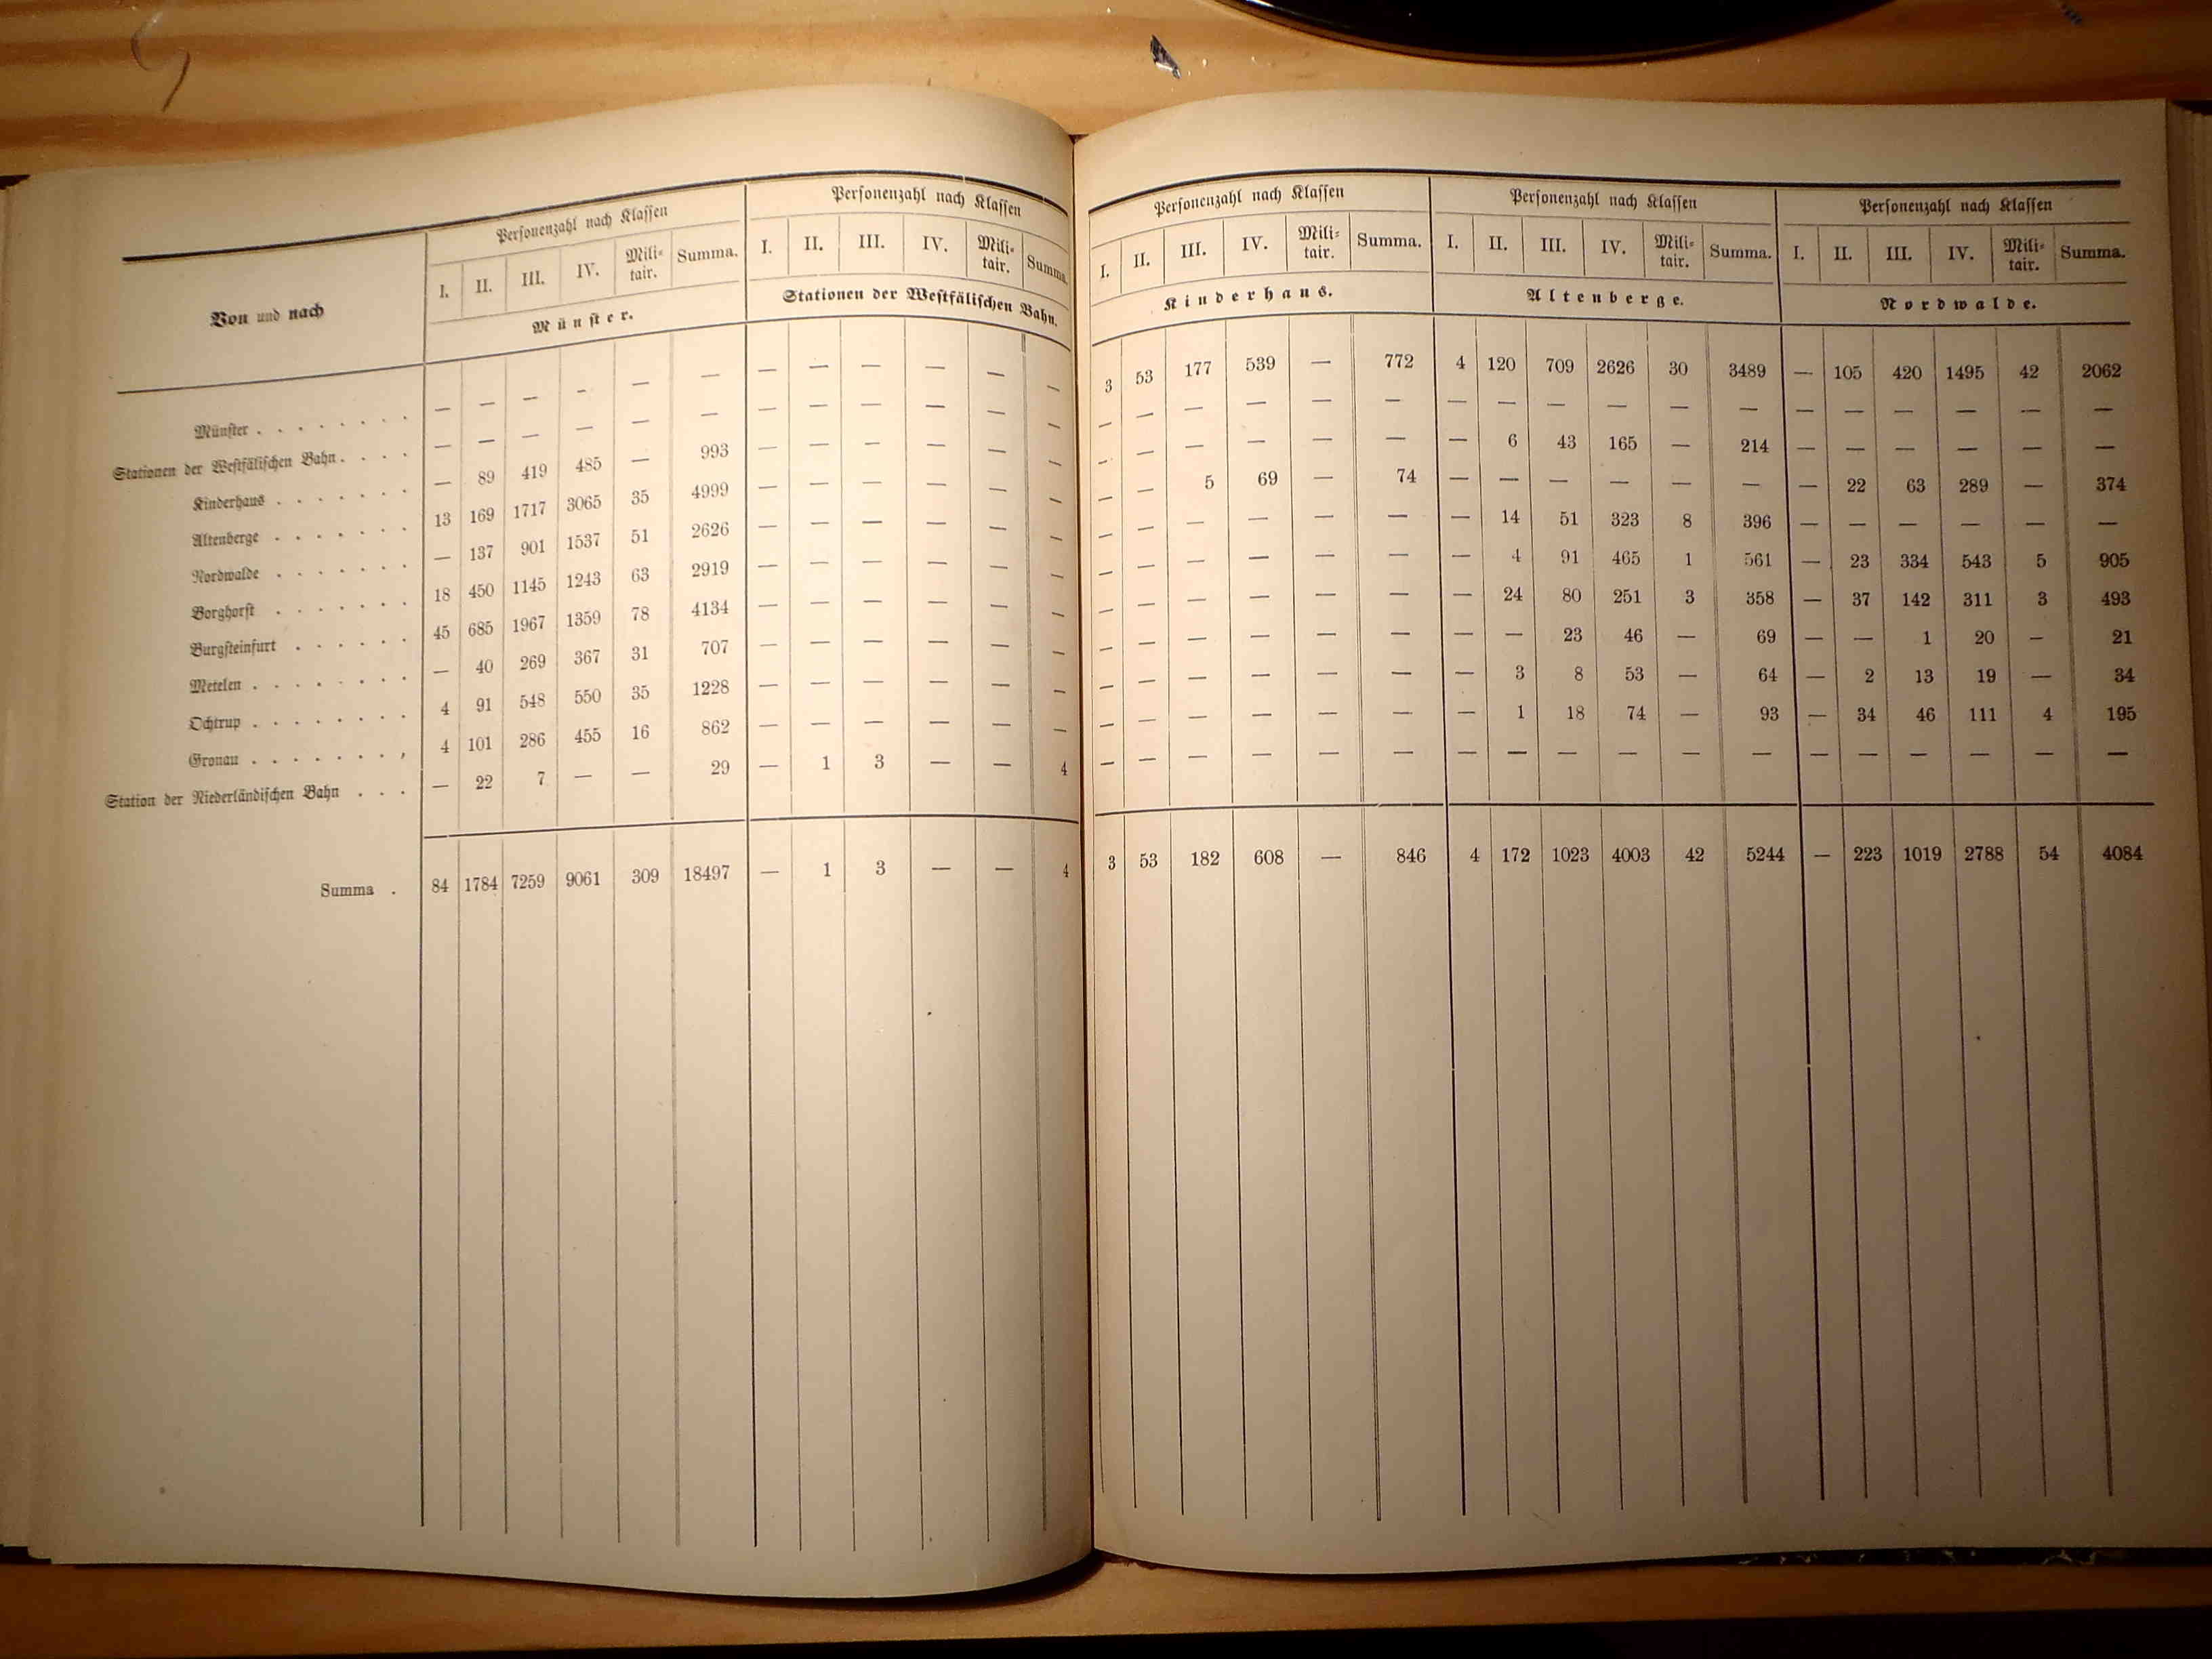 Von und nach
Personenzahl nach Klassen
I. II. III. IV. Mili-tair. Summa.
Münster.
Personenzahl nach Klassen
I. II. III. IV. Mili-tair. Summa.
Stationen der Westfälischen Bahn.
Personenzahl nach Klassen
I. II. III. IV. Mili-tair. Summa.
Kinderhaus.
Personenzahl nach Klassen
I. II. III. IV. Mili-tair. Summa.
Altenberge.
Personenzahl nach Klassen
I. II. III. IV. Mili-tair. Summa.
Nordwalde.
Münster . . . . . . . . — — — — — — — — — — — — 3 53 177 539 — 772 4 120 709 2626 30 3489 — 105 420 1495 42 2062
Stationen der Westfälischen Bahn . . . . — — — — — — — — — — — — — — — — — — — — — — — — — — — — — —
Kinderhaus . . . . . . . — 89 419 485 — 993 — — — — — — — — — — — — — 6 43 165 — 214 — — — — — —
Altenberge . . . . . . . 13 169 1717 3065 35 4999 — — — — — — — — 5 69 — 74 — — — — — — — 22 63 289 — 374
Nordwalde . . . . . . . — 137 901 1537 51 2626 — — — — — — — — — — — — — 14 51 323 8 396 — — — — — —
Borghorst . . . . . . . 18 450 1145 1243 63 2919 — — — — — — — — — — — — — 4 91 465 1 561 — 23 334 543 5 905
Burgsteinfurt . . . . . . 45 685 1967 1359 78 4134 — — — — — — — — — — — — — 24 80 251 3 358 — 37 142 311 3 493
Metelen . . . . . . . . — 40 269 367 31 707 — — — — — — — — — — — — — — 23 46 — 69 — — 1 20 — 21
Ochtrup . . . . . . . . 4 91 548 550 35 1228 — — — — — — — — — — — — — 3 8 53 — 64 — 2 13 19 — 34
Gronau . . . . . . . , 4 101 286 455 16 862 — — — — — — — — — — — — — 1 18 74 — 93 — 34 46 111 4 195
Station der Niederländischen Bahn . . . — 22 7 — — 29 — 1 3 — — 4 — — — — — — — — — — — — — — — — — —
Summa . 84 1784 7259 9061 309 18497 — 1 3 — — 4 3 53 182 608 — 846 4 172 1023 4003 42 5244 — 223 1019 2788 54 4084